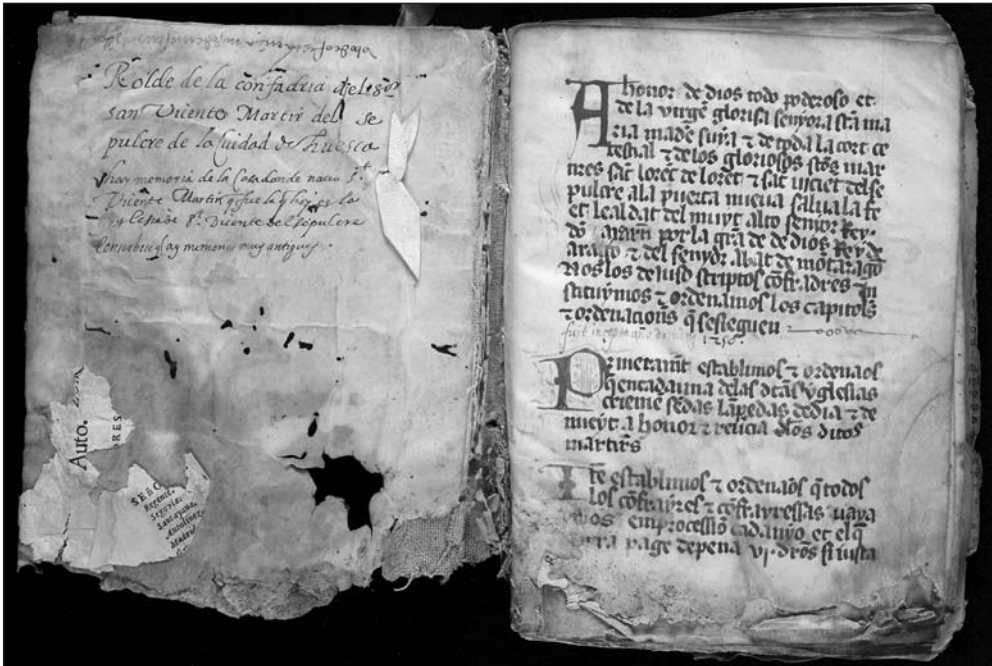 Rolde de la confadria del s.or
san Vicente Martir del se
pulcre de la ciudad de huesca
hay memoria de la Casa donde nacio S.t
Vicente Martir q fue la q hoy es la
yglesia de S.t Vicente del sepulcre
muy antiguas
Auto.
ORES
SEÑO
Regente.
Segovia.
Santayana.
Antolinez.
Madro
A honor de dios todo poderoso et
de la virgē gloriosa senyora sta ma
ria madre suya τ de toda la cort ce
lestial τ de los gloriosos stos mar
tires sāt loret de loret τ sāt vicēt del se
pulcre ala puerta nueva salua la fe
et lealdat del muyt alto senyor Rey
por la grā de dios Rey de
aragō τ del senyor abat de mōtaragō
Nos los de iuso scriptos cōfradres
stituymos τ ordenamos los capitols
τ ordenacions q̄ se sieguen
1256.
Primerament establimos τ ordenaos
q̄ en cada una de las dtas yglesias
lāpedas de dia τ de
nueyt a honor τ de los ditos
martirs
Itē establimos τ ordenaōs q̄ todos
los cōfrayres τ cōfrayressas vaya
en processiō cad anyo et el q̄
page de pena vj. dros si iusta